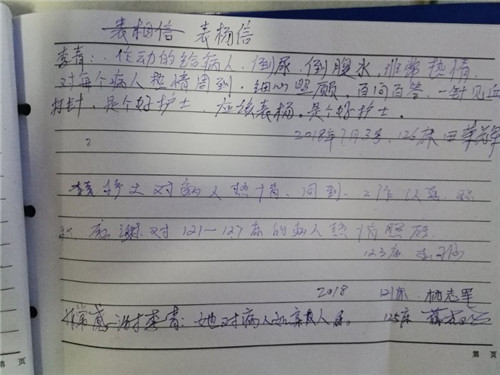 表相信 表杨信
李青:.作动的给病人,倒尿,倒腹水,非常热情,
对每个病人热情周到,细心照顾,百问百答,一针见血
打针,是个好护士 应该表杨,是个好护士.
2018年7月3号,126床田
护士对病人热情,周到,工作认真,
感谢对121—127床的病人热情照顾
123床
2018 121床 杨志军
李青:她对病人如亲人 125床
第 页
第 页